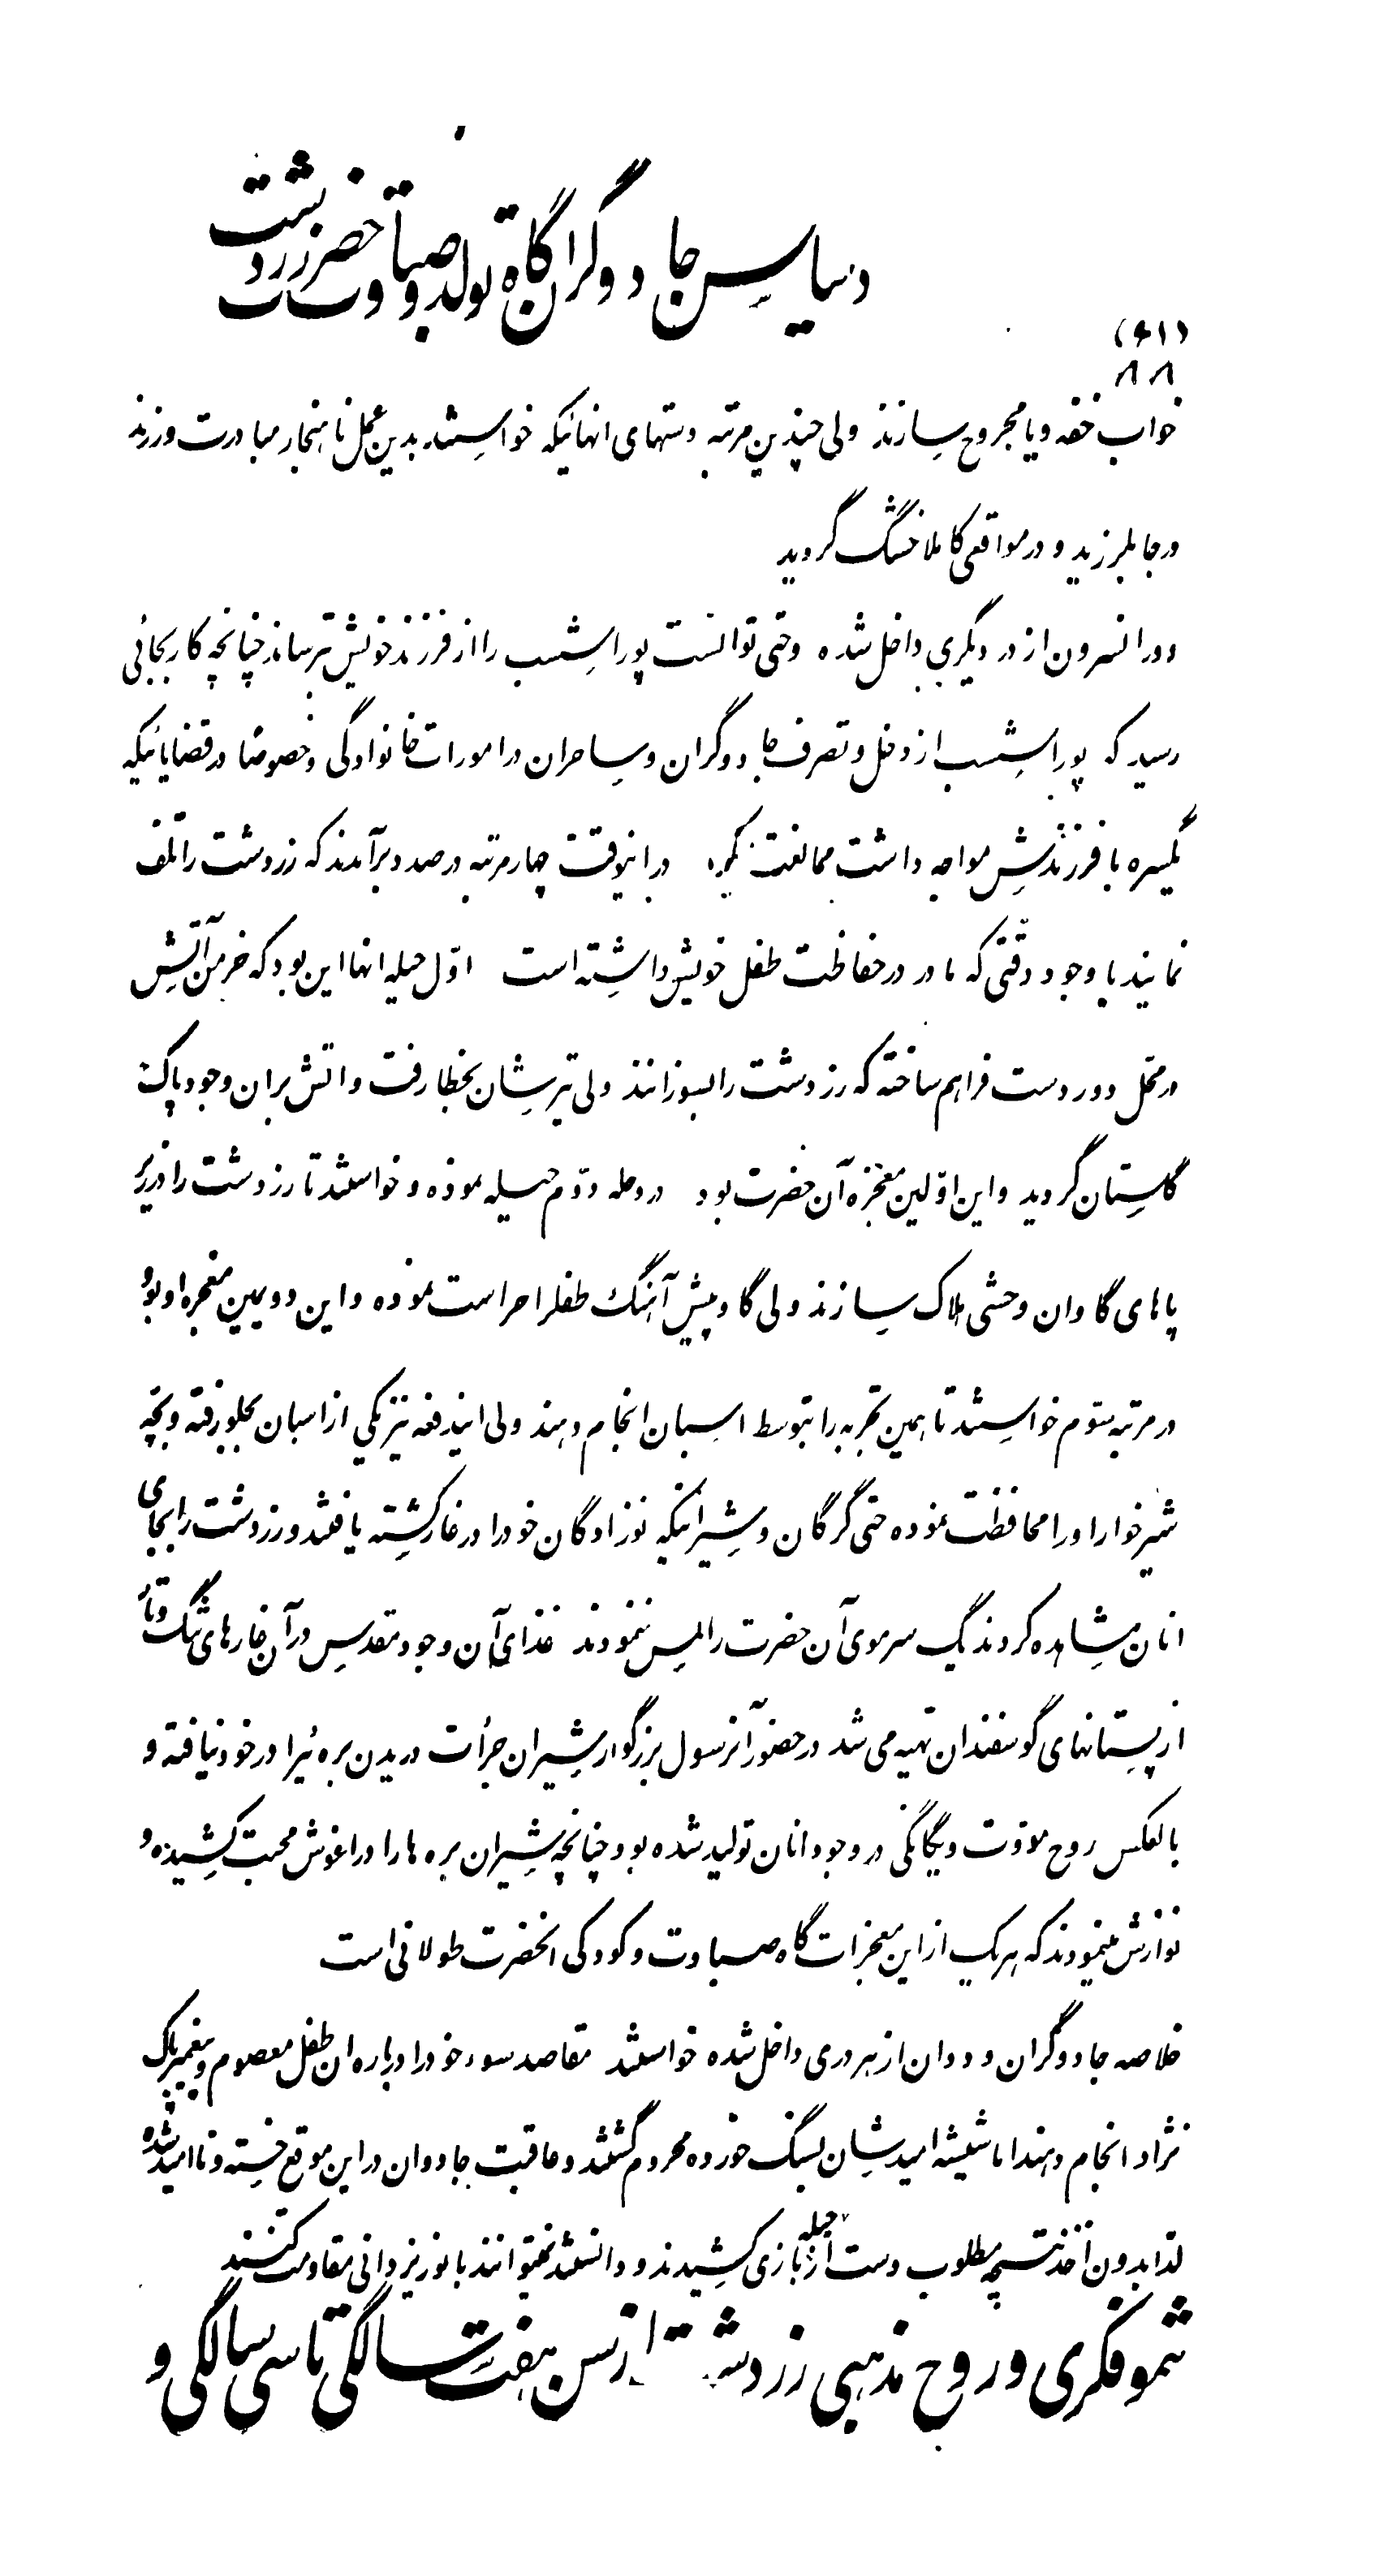 دسایس جادوگران گاه تولد و صباوت حضرت زردشت
(۶۱)
۸۸
خواب خفه و یا مجروح سازند ولی چندین مرتبه دستهای انهائیکه خواستند بدین عمل ناهنجار مبادرت ورزند
درجا بلرزید و در مواقعی کاملا خشک گردید
دورانسرون از در دیگری داخل شده وحتی توانست پوراشسب را از فرزند خویش بترساند چنانچه کار بجائی
رسید که پوراشسب از دخل و تصرف جادوگران و ساحران در امورات خانوادگی و خصوصا در قضایائیکه
یکسره با فرزندش مواجه داشت ممانعت نکرد در اینوقت چهار مرتبه درصدد برآمدند که زردشت را تلف
نمایند با وجود دقتی که مادر در حفاظت طفل خویش داشته است اوّل حیله انها این بود که خرمن آتش
در محل دور دست فراهم ساخته که زردشت را بسوزانند ولی تیرشان بخطا رفت و اتش بران وجود پاک
گلستان گردید و این اوّلین معجزه آن حضرت بود در وهله دوّم حیله نموده و خواستند تا زردشت را در زیر
پاهای گاوان وحشی هلاک سازند ولی گاو پیش آهنگ طفل را حراست نموده و این دویمین معجزه او بود
در مرتبه سوّم خواستند تا همین تجربه را بتوسط اسبان انجام دهند ولی ایندفعه نیز یکی از اسبان بجلو رفته و بچّه
شیرخوار او را محافظت نموده حتی گرگان و شیرانیکه نوزادگان خود را در غار کشته یافتند و زردشت را بجای
انان مشاهده کردند یک سر موی آن حضرت را لمس ننمودند غذای آن وجود مقدس در آن غارهای تنگ و تار
از پستانهای گوسفندان تهیه می شد در حضور آنرسول بزرگوار شیران جرأت دریدن بره را در خود نیافته و
بالعکس روح مؤدت و یگانگی در وجود انان تولید شده بود چنانچه شیران بره ها را در اغوش محبت کشیده و
نوازش مینمودند که هر یک از این معجزات گاه صباوت و کودکی انحضرت طولانی است
خلاصه جادوگران و ددان از هر دری داخل شده خواستند مقاصد سوء خود را درباره ان طفل معصوم و پیغمبر پاک
نژاد انجام دهند اما شیشه امیدشان بسنگ خورده محروم گشتند و عاقبت جادوان در این موقع خسته و ناامید شده
لذا بدون اخذ نتیجه مطلوب دست از حیله بازی کشیدند و دانستند نمیتوانند با نور یزدانی مقاومت کنند
نمو فکری و روح مذهبی زردشت از سن هفت سالگی تا سی سالگی و